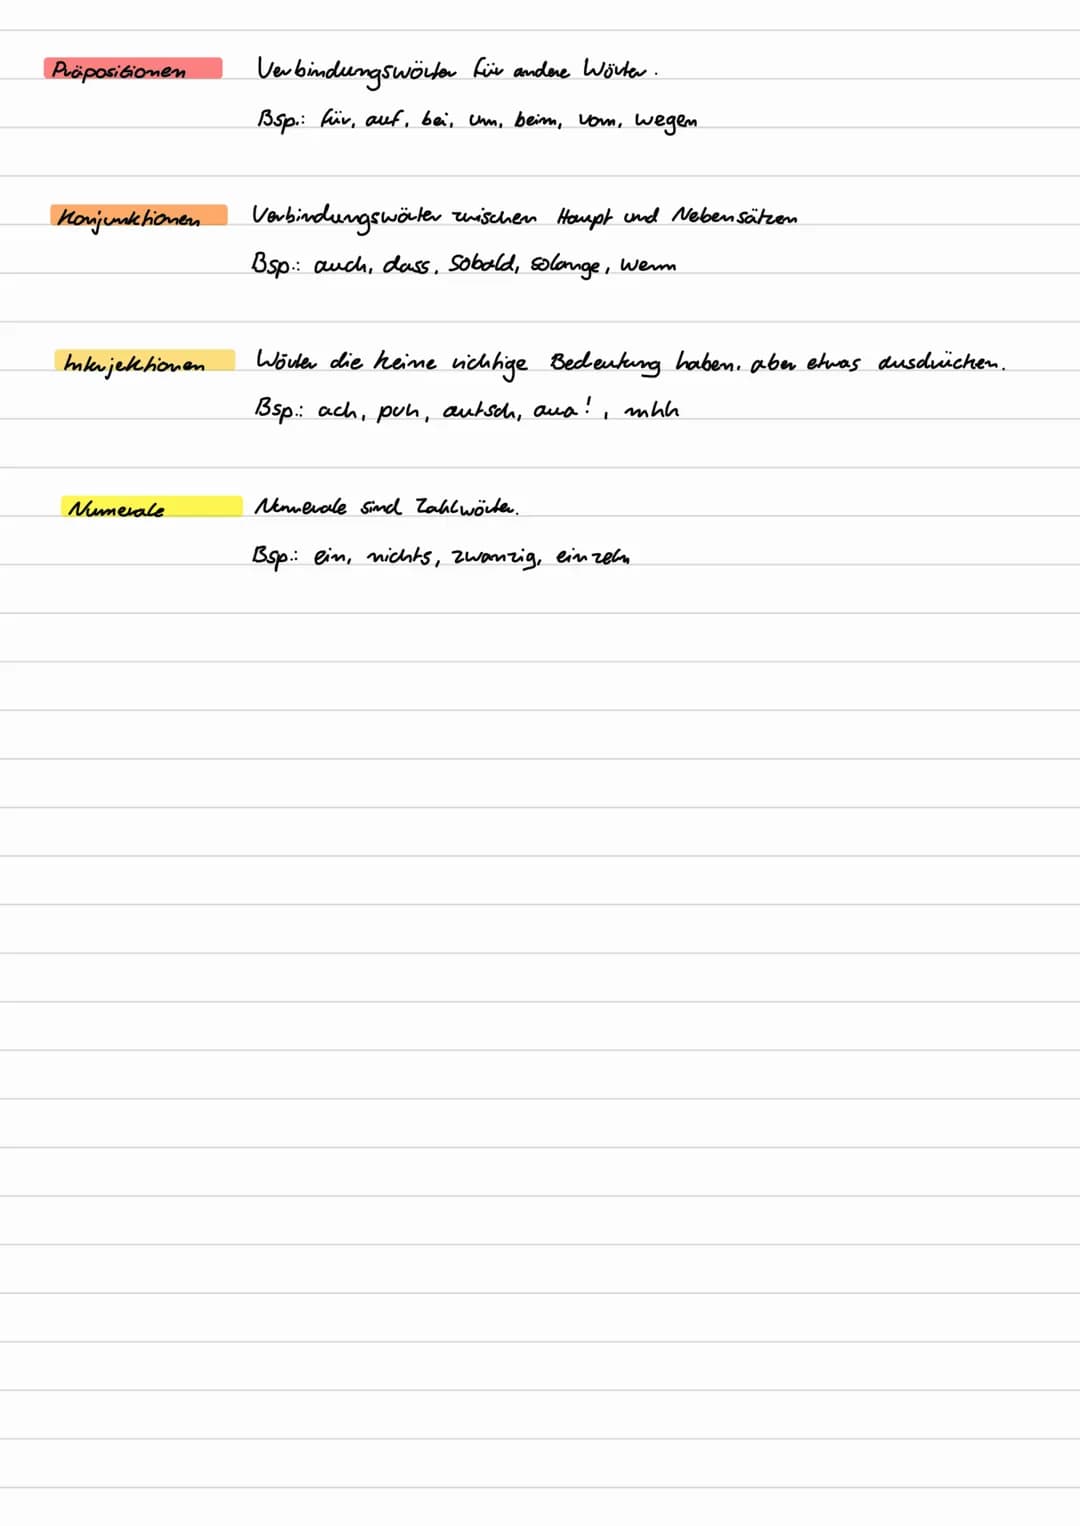 Präpositionen Verbindungswörter für andere Wörter.
Bsp.: für, auf, bei, um, beim, vom, wegen
Konjunktionen Verbindungswörter zwischen Haupt und Nebensätzen
Bsp.: auch, dass, sobald, solange, wenn
Interjektionen Wörter die keine richtige Bedeutung haben, aber etwas ausdrücken.
Bsp.: ach, puh, autsch, aua!, mhh
Numerale Numerale sind Zahlwörter.
Bsp.: ein, nichts, zwanzig, einzeln